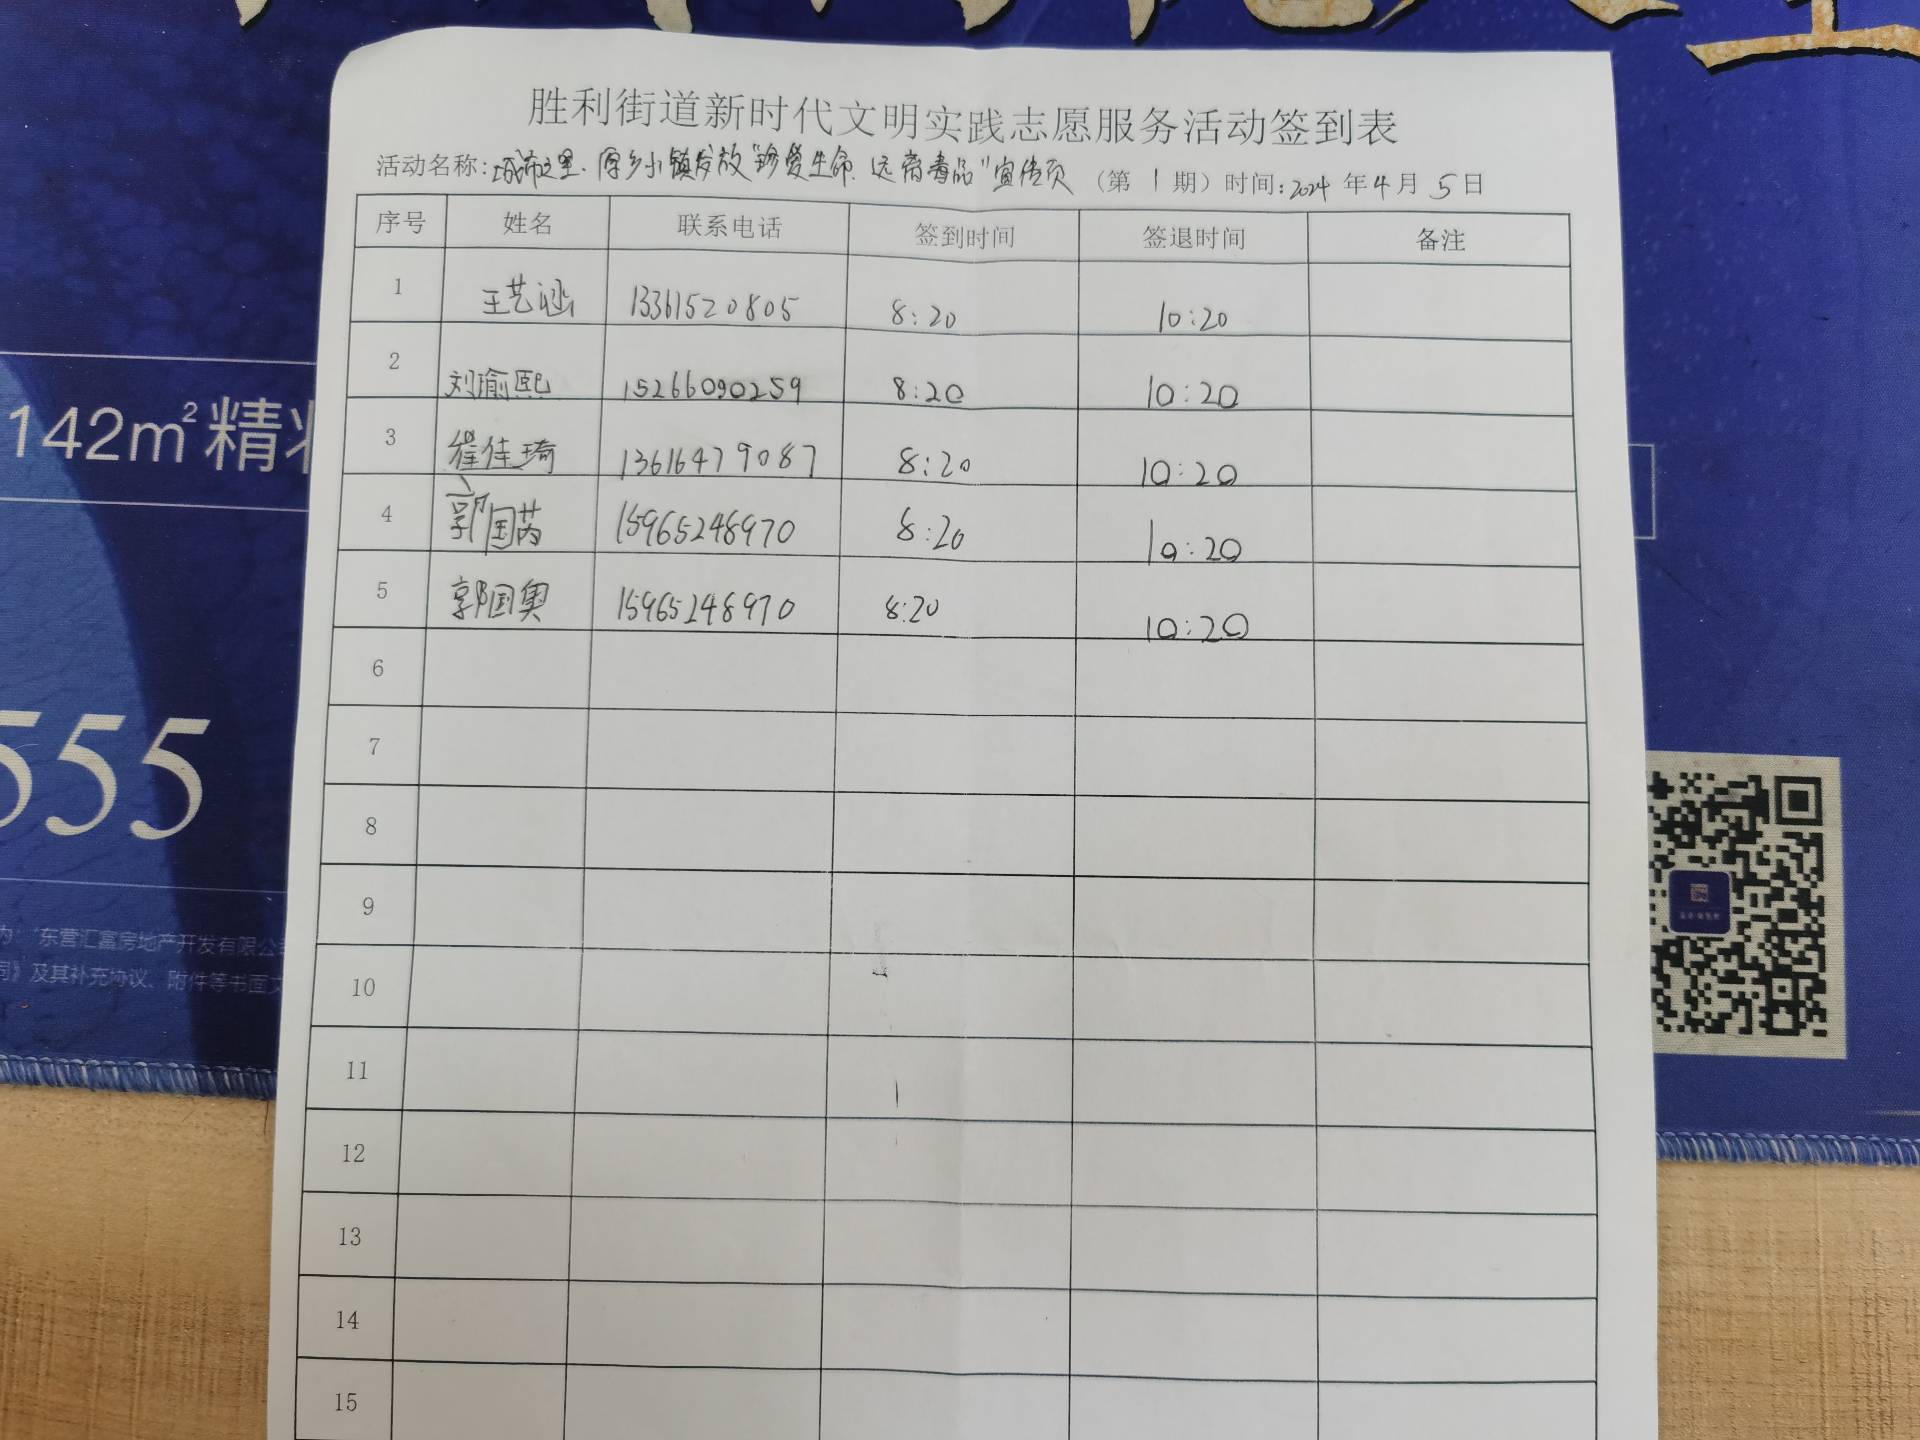 胜利街道新时代文明实践志愿服务活动签到表
活动名称:城市之星·原乡小镇发放"珍爱生命 远离毒品"宣传页 (第 1 期) 时间:2024 年 4 月 5 日
序号 姓名 联系电话 签到时间 签退时间 备注
1 王艺涵 13361520805 8:20 10:20
2 刘瑜熙 15266090259 8:20 10:20
3 崔佳琦 13616479087 8:20 10:20
4 郭国芮 15965248970 8:20 10:20
5 郭国奥 15965248970 8:20 10:20
6
7
8
9
10
11
12
13
14
15
142m²精
555
为:"东营汇富房地产开发有限公
同》及其补充协议、附件等书面文